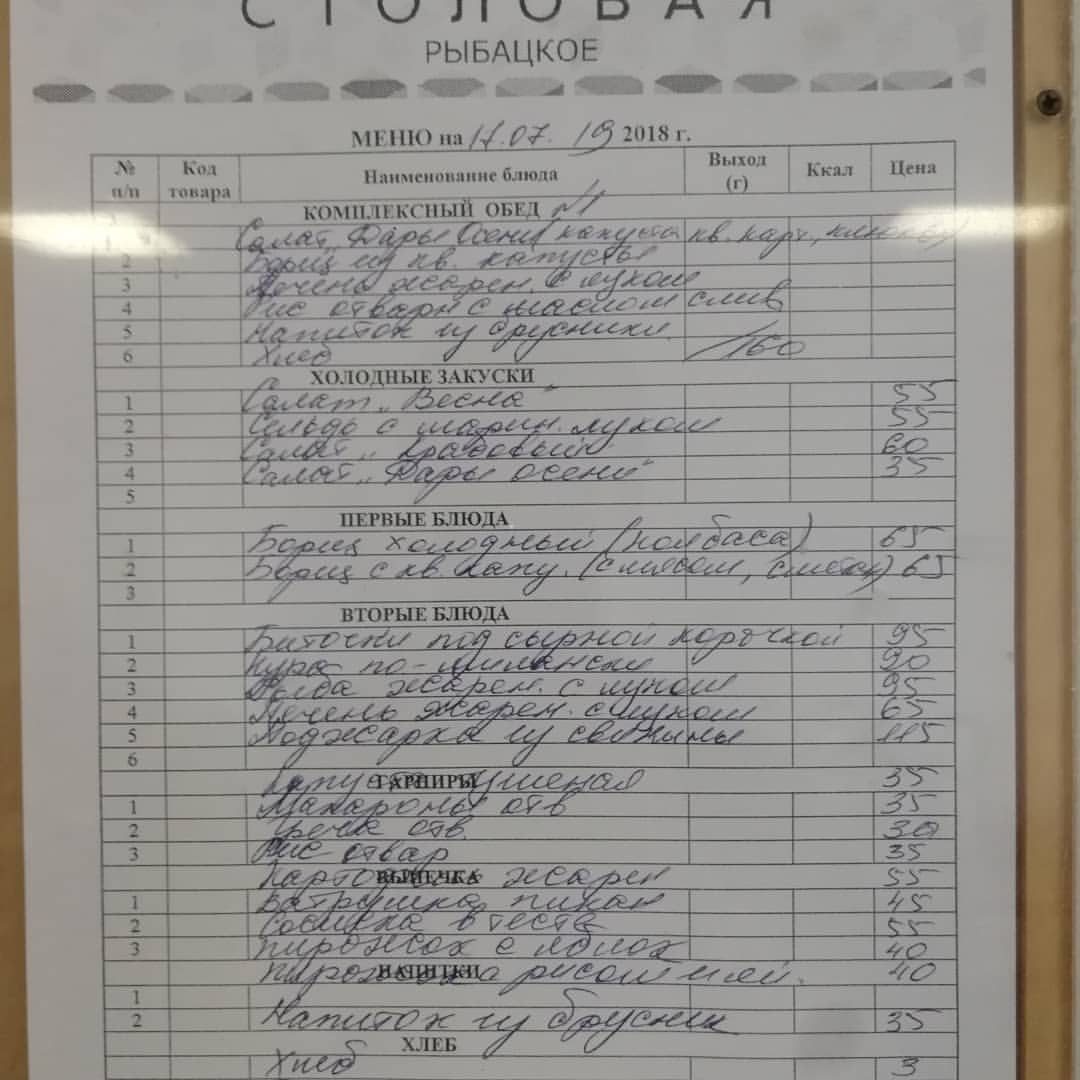 СТОЛОВАЯ
РЫБАЦКОЕ
МЕНЮ на 17.07. 19 2018 г.
№ п/п Код товара Наименование блюда Выход (г) Ккал Цена
КОМПЛЕКСНЫЙ ОБЕД №1
1 Салат „Дары Осени (капуста кв. карт., клюква)
2 Борщ из кв. капусты
3 Печень жарен. с луком
4 Рис отварн с маслом слив
5 Напиток из брусники
6 Хлеб /160
ХОЛОДНЫЕ ЗАКУСКИ
1 Салат „Весна" 55
2 Сельдь с марин. луком 55
3 Салат „Крабовый" 60
4 Салат „Дары осени" 35
5
ПЕРВЫЕ БЛЮДА
1 Борщ холодный (колбаса) 65
2 Борщ с кв. капу. (с мясом, сметан) 65
3
ВТОРЫЕ БЛЮДА
1 Биточки под сырной корочкой 95
2 Кура по-милански 90
3 жарен. с луком 95
4 Печень жарен. с луком 65
5 Поджарка из свинины 115
6
ГАРНИРЫ
Капуста тушеная 35
1 Макароны отв 35
2 Греча отв. 30
3 Рис отвар 35
ВЫПЕЧКА
Картофель жарен 55
1 Ватрушка пикан 45
2 Сосиска в тесте 55
3 Пирожок с яблок 40
НАПИТКИ
Пирожок рисом 40
1
2 Напиток из брусник 35
ХЛЕБ
Хлеб 3